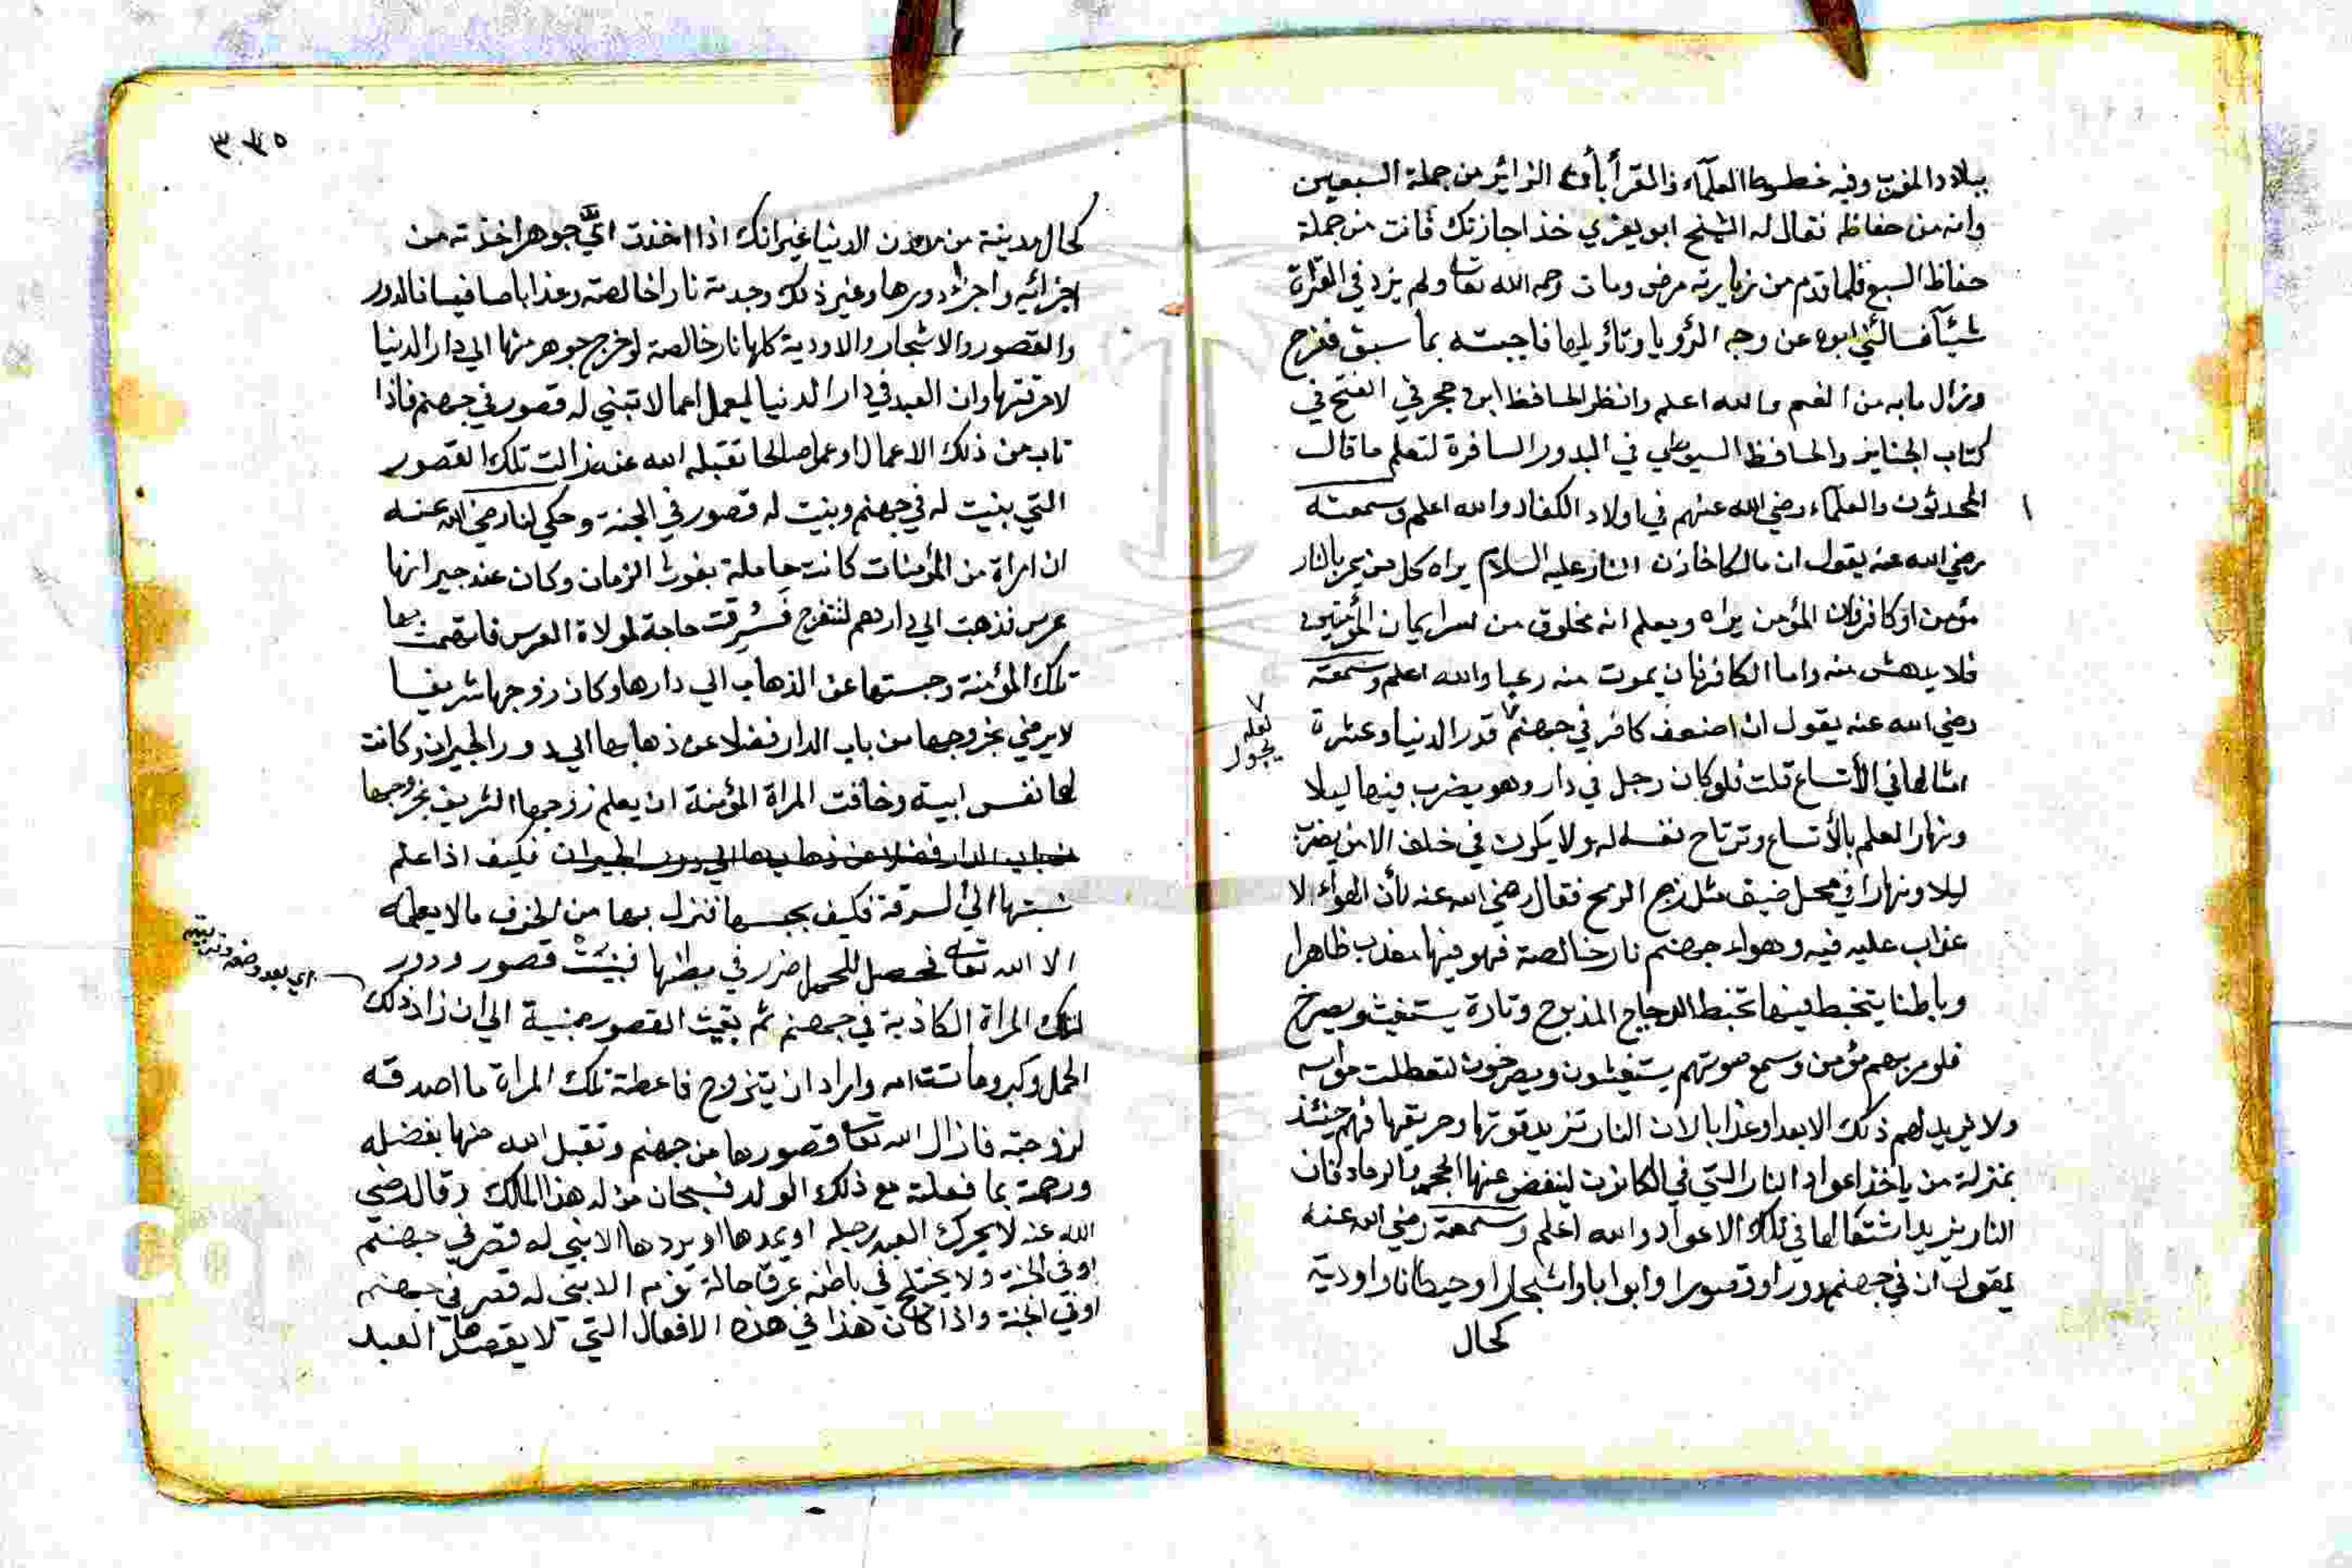 ببلاد المغرب وفيه خطوط العلماء والقرأ بأن الزائر من جملة السبعين
وانه من حفاظه فقال له الشيخ ابو يعزي خذ اجازتك فانت من جملة
حفاظ السبع فلما قدم من زيارته مرض ومات رحمه الله تعا ولم يزد في القراة
شيئا فسالني ابوه عن وجه الرؤيا وتأويلها فاجبته بما سبق ففرح
وزال ما به من الغم والله اعلم وانظر الحافظ ابن حجر في الفتح في
كتاب الجنايز والحافظ السيوطي في البدور السافرة لتعلم ما قالت
المحدثون والعلماء رضي الله عنهم في اولاد الكفار والله اعلم وسمعته
رضي الله عنه يقول ان مالكا خازن النار عليه السلام يراه كل من يمر بالنار
مؤمن او كافر فان المؤمن يراه ويعلم انه مخلوق من سر ايمان المؤمنين
فلا يدهش منه واما الكافر فانه يموت منه رعبا والله اعلم وسمعته
رضي الله عنه يقول ان اضعف كافر في جهنم قدر الدنيا وعشرة
لعله
يجول
امثالها في الأتساع قلت فلو كان رجل في دار وهو يضرب فيها ليلا
ونهارا لعلم بالأتساع وترتاح نفسه له ولا يكون في خلف الامن يضرب
ليلا ونهارا في محل ضيف مثل زج الرمح فقال رضي الله عنه لأن الهواء لا
عذاب عليه فيه وهواء جهنم نار خالصة فهو فيها معذب ظاهرا
وباطنا يتخبط فيها تخبط الدجاج المذبوح وتارة يستغيث ويصرخ
فلو مر بهم مؤمن وسمع صوتهم يستغيثون ويصرخون لتعطلت حواسه
ولا يزيد لهم ذلك الا بعدا وعذابا لأن النار تزيد قوتها وحريقها فهم حينئذ
بمنزلة من ياخذ اعواد النار التي في الكانون لينفض عنها الجمر والرماد فان
النار يزيد اشتعالها في تلك الاعواد والله اعلم وسمعته رضي الله عنه
يقول ان في جهنم دورا وقصورا وابوابا واشجارا وحيطانا واودية
كحال
٣٤٥
كحال مدينة من مدن الدنيا غير انك اذا اخذت اي جوهر اخذته من
اجزائيه واجزاء دورها وغير ذلك وجدته نارا خالصة وعذابا صافيا فالدور
والقصور والاشجار والاودية كلها نار خالصة لو خرج جوهر منها الي دار الدنيا
لاحرقتها وان العبد في دار الدنيا ليعمل اعمالا تبني له قصور في جهنم فاذا
تاب من ذلك الاعمال او عمل صالحا تقبله الله عنه زالت تلك القصور
التي بنيت له في جهنم وبنيت له قصور في الجنة وحكي لنا رضي الله عنه
ان امراة من المؤمنات كانت حاملة بغوث الزمان وكان عند جيرانها
عرس فذهبت الي دارهم لتتفرج فسرقت حاجة لمولاة العرس فاتهمت بها
تلك المؤمنة وحبستها عن الذهاب الي دارها وكان زوجها شريفا
لا يرضي بخروجها من باب الدار فضلا عن ذهابها الي دور الجيران وكانت
لها نفس ابية وخافت المراة المؤمنة ان يعلم زوجها الشريف بخروجها
من باب الدار فضلا عن ذهابها الي دور الجيران فكيف اذا علم
نسبتها الي السرقة فكيف بحبسها فنزل بها من الخوف ما لا يعلمه
الا الله تعا فحصل للحمل ضرر في بطنها فبنيت قصور ودور
لتلك المراة الكاذبة في جهنم ثم بقيت القصور مبنية الي ان زاد ذلك
اي بعد وضعه وتربيته
الحمل وكبر وماتت امه واراد ان يتزوج فاعطته تلك المراة ما اصدقه
لزوجته فازال الله تعا قصورها من جهنم وتقبل الله منها بفضله
ورحمة بما فعلته مع ذلك الولد فسبحان من له هذا الملك وقال رضي
الله عنه لا يحرك العبد رجله او يمدها او يردها الا بني له قصر في جهنم
او في الجنة ولا يختلج في باطنه عرق حالة نومه الا بني له قصر في جهنم
او في الجنة واذا كان هذا في هذه الافعال التي لا يقصدها العبد